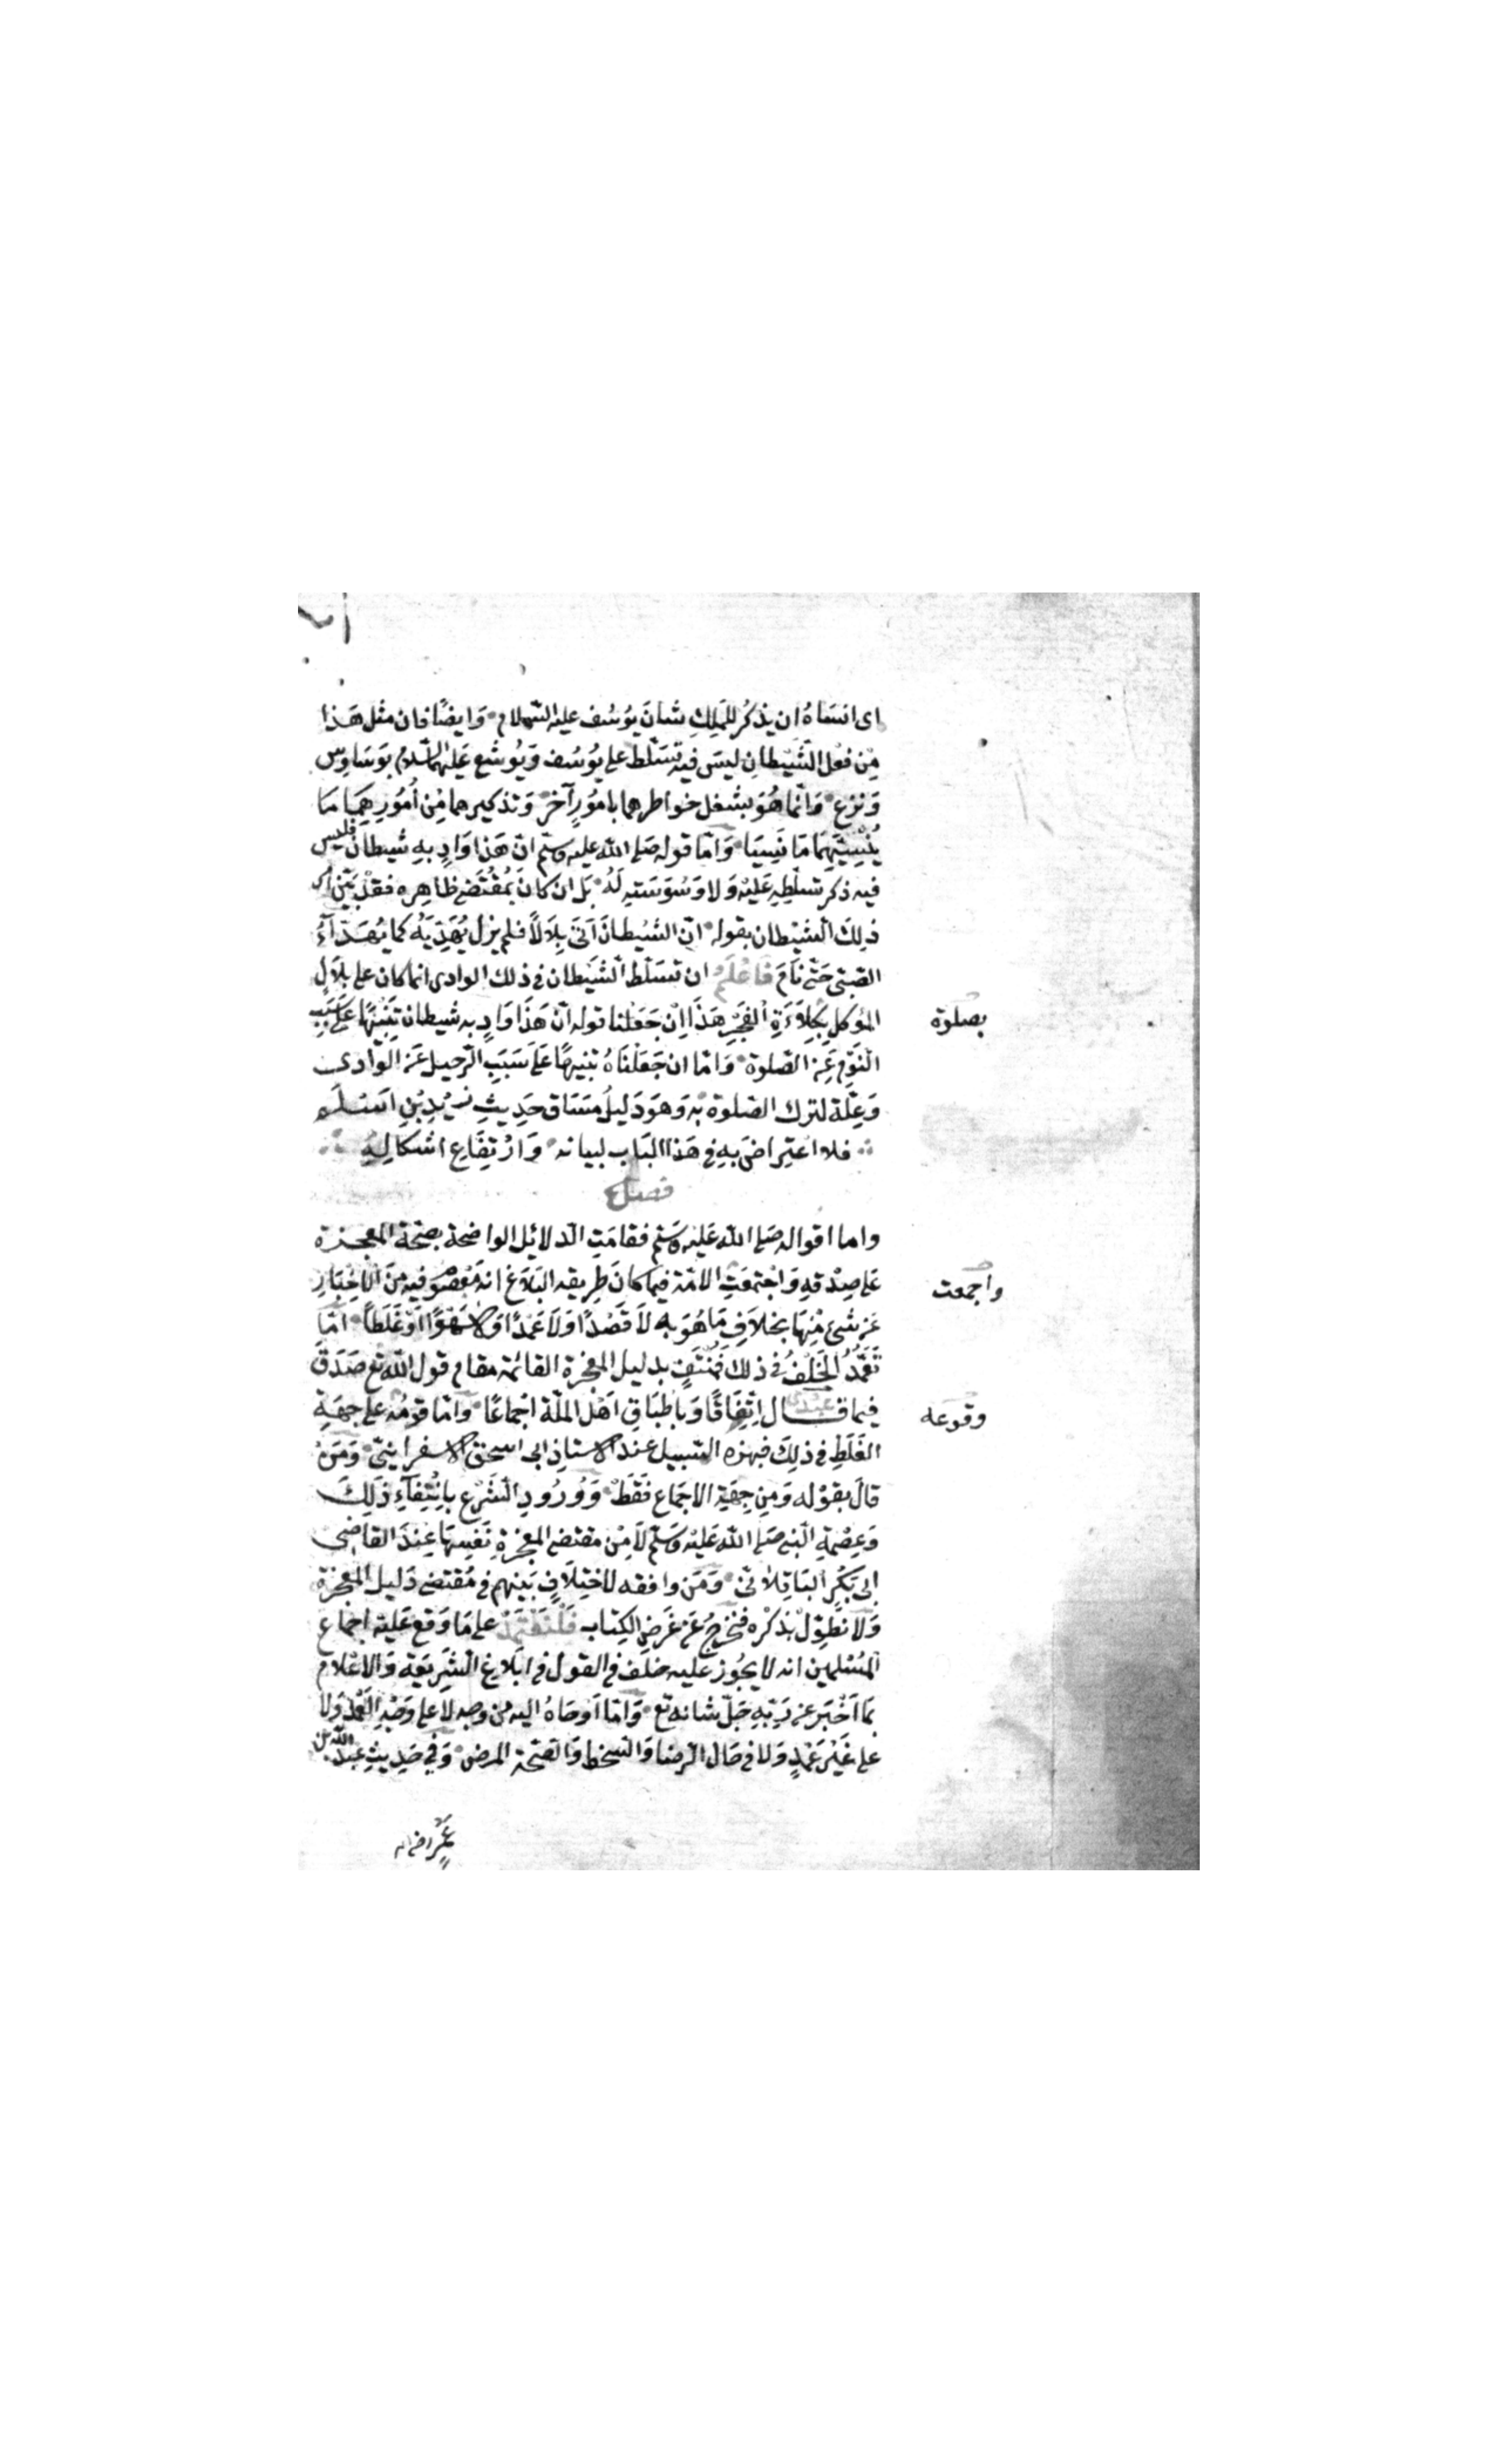 اى انسَاهُ ان يذكُر للمَلِكِ شانَ يوُسُف عليه السّلام وَايضًا فان مثل هَذا
مِن فعْل الشّيْطانِ ليسَ فيه تسَلّط على يوُسُف وَيُوشع عَليْهما السّلام بوَسَاوِس
وَنزغ وَانّما هُوَ بشغل خواطرهما بامُوَرٍ آخر وَتذكيرهما مِن اُمُورِهِمَا مَا
يُنْسِيْهِمَا مَا نَسِيَا وَامّا قوله صَلى الله عليه وسَلّم انّ هَذا وَادٍ بهِ شيطان فليس
فيه ذكر تسَلّطِهِ عَليْهِ وَلا وَسُوَسَتهِ لَهُ بَل ان كانَ بمُقْتَضى ظاهِره فقدْ بَيّن امر
ذلِكَ الشّيْطان بقوله انّ الشيْطانَ اَتىَ بِلاَلاً فلم يزل يُهَدِّيَهُ كما يُهَدّآءُ
الصّبى حَتّى نَامَ فَاعْلَمْ ان تسَلّط الشّيْطان فى ذلك الوادى انما كان على بلاَل
المُوَكل بِكِلاَءَةِ الفَجْرِ هَذَا اِنْ جَعَلنا قوله انّ هَذَا وَادٍ به شيطان تنبيْهًا عَلىَ سَبَبِ
بصلوة
النّوْمِ عَنِ الصّلوة وَامّا ان جَعَلْنَاهُ تنبيهًا عَلىَ سَبَبِ الرّحيل عَن الوَادى
وَعِلّة لترك الصّلوة بهِ وَهوَ دَليلُ مسَاق حَدِيثِ زَيْدِ بْنِ اَسْلَم
فلا اعتِراضَ بهِ فى هَذا البَاب لبيانه وَارْتِفَاعِ اشكالِهِ
فصل
واما اقواله صَلى الله عَليْه وَسَلّم فقامَتِ الدّلائِل الواضحة بصحّة المعجزة
عَلى صِدْقهِ وَاجْتمعَتِ الامّة فيما كانَ طِريقه البَلاَغ انه مَعْصُوم فيه مِنَ الاِخْبَارِ
واجمعت
عَن شئ مِنْهَا بخلاَفِ مَا هُوَ بهِ لاَ قصْدًا وَلاَ عَمْدًا وَلا سَهْوًا اوْ غَلطًا امّا
تَعَمُّدُ الخُلْفُ فى ذلكَ فمُنْتَفٍ بدليل المعجزة القائمة مقام قول الله تع صَدَقَ
عَبْدى فيما قال اِتفَاقًا وَباِطْبَاقِ اَهْل الملّة اجْماعًا وَامّا وقوعُه على جِهَةِ
وقوعه
الغَلطِ فى ذلِكَ فبهَذه السّبيل عند الاستاذ ابى اسحق الاسفراينىّ وَمَنْ
قالَ بقوْله وَمِن جِهَةِ الاجمَاع فقَط وَوُرُودِ الشّرْعِ بانْتِفآءِ ذلِكَ
وَعِصْمَةِ النّبى صَلى الله عَليْه وَسَلّم لاَ مِنْ مقتضى المعجزةِ نَفسِهَا عِندَ القاضِى
ابى بَكْرٍ البَاقِلاَنىّ وَمَن وافقه لاختِلاَفٍ بَينهم فى مُقتضى دَليل المعجزة
وَلا نطَوّلْ بذكْره فنخرجُ عَن غَرَضِ الكِتاب فَلْنَعْتمِدْ على مَا وَقع عَليْه اِجْماعُ
المُسْلمِين انه لا يجُوز عليه خلف فى القول فى ابلاَغ الشّريعَة وَالاِعْلاَم
بمَا اَخْبَر عن رَبّهِ جَلّ شانه تع وَامّا اَوحَاهُ اليه من وحيه لا على وَجْهِ العَمْد وَلا
على غَيْر عَمْدٍ وَلا فى حَال الرّضا وَالسّخط وَالصّحة المرض وَفى حَدِيثِ عَبْدِ الله بن
عَمْرٍو رضى الله